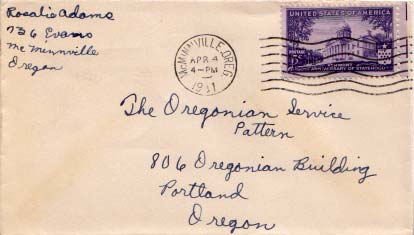 Rosalie Adams
736 Evans
McMinnville
Oregon
McMINNVILLE, OREG.
APR 4
4-PM
1941
UNITED STATES OF AMERICA
POSTAGE
3¢
VERMONT
150TH ANNIVERSARY OF STATEHOOD
The Oregonian Service
Pattern
806 Oregonian Building
Portland
Oregon